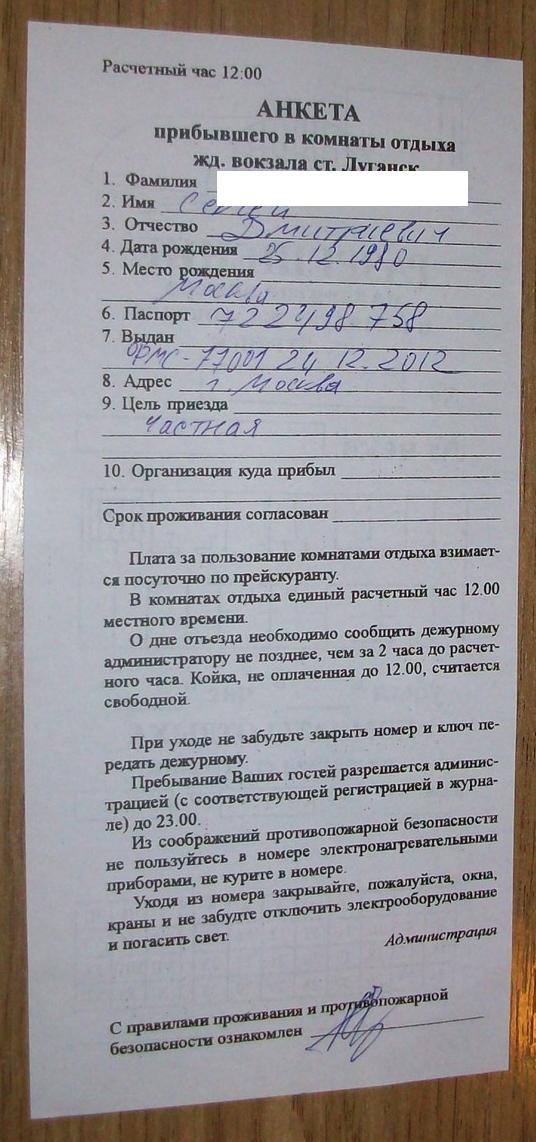 Расчетный час 12:00
АНКЕТА
прибывшего в комнаты отдыха
жд. вокзала ст. Луганск
1. Фамилия
2. Имя Сергей
3. Отчество Дмитриевич
4. Дата рождения 25.12.1980
5. Место рождения
Москва
6. Паспорт 722498 758
7. Выдан
ФМС-77001 24 12.2012
8. Адрес г. Москва
9. Цель приезда
Частная
10. Организация куда прибыл
Срок проживания согласован
Плата за пользование комнатами отдыха взимает-
ся посуточно по прейскуранту.
В комнатах отдыха единый расчетный час 12.00
местного времени.
О дне отъезда необходимо сообщить дежурному
администратору не позднее, чем за 2 часа до расчет-
ного часа. Койка, не оплаченная до 12.00, считается
свободной.
При уходе не забудьте закрыть номер и ключ пе-
редать дежурному.
Пребывание Ваших гостей разрешается админис-
трацией (с соответствующей регистрацией в журна-
ле) до 23.00.
Из соображений противопожарной безопасности
не пользуйтесь в номере электронагревательными
приборами, не курите в номере.
Уходя из номера закрывайте, пожалуйста, окна,
краны и не забудте отключить электрооборудование
и погасить свет.
Администрация
С правилами проживания и противопожарной
безопасности ознакомлен